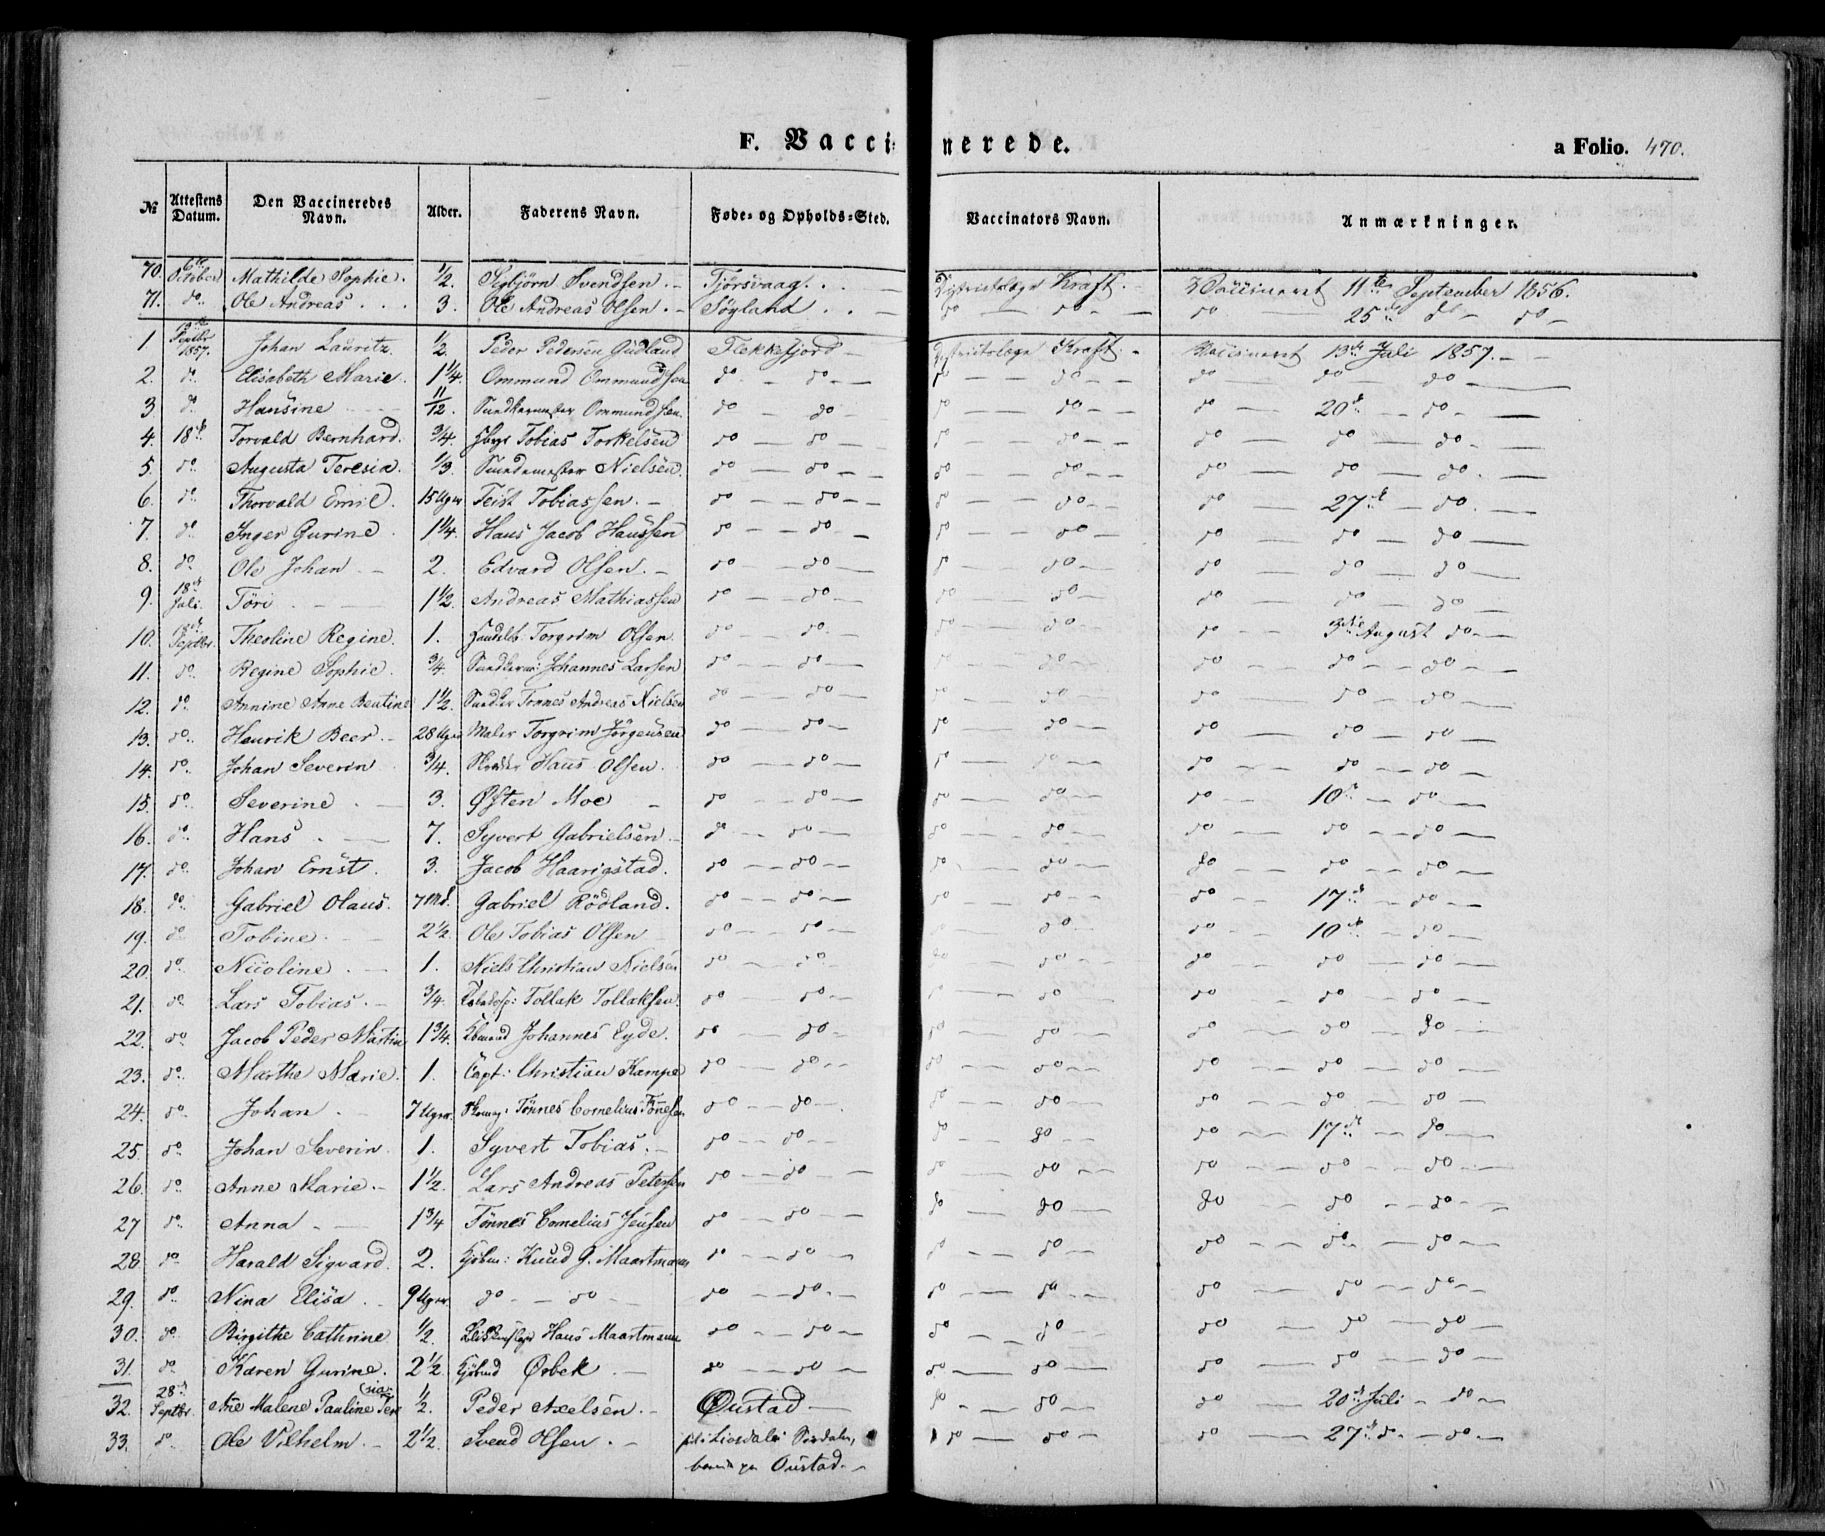 F. Vaccinerede.
a Folio. 470.
№ | Attestens Datum. | Den Vaccineredes Navn. | Alder. | Faderens Navn. | Føde- og Opholds-Sted. | Vaccinators Navn. | Anmærkninger.
70. 6te October Mathilde Sophie. 1/2. Sigbjörn Svendsen. Tjörsvaag. Districtslæge Kraft. Vaccineret 11te September 1856.
71. do Ole Andreas 3. Ole Andreas Olsen. Föyland do do do 25de do do
1 Septbr 1857. Johan Lauritz 1/2. Peder Pedersen Gudland Flekkefjord Districtslæge Kraft. Vaccineret 13de Juli 1857.
2. do Elisabeth Marie. 1 1/4. Ommund Ommundsen do do do do do do do
3 do Hansine 11/12. Ommundsen. do do do do do 20de do
4. 18de Torvald Bernhard. 3/4. Tobias Torkelsen do do do do do do do
5. do Augusta Teresia. 1/3. Nielsen. do do do do do do do
6. do Thorvald Emil. 15 Uger Feist Tobiassen. do do do do do 27de do
7. do Inger Gurine 1 1/4. Hans Jacob Hanssen do do do do do do do
8. do Ole Johan 2. Edvard Olsen. do do do do do do do
9. 18de Juli. Töri 1 1/2. Andreas Mathiassen do do do do do do do
10. 18de Septbr. Theoline Regine. 1. Torgrim Olsen do do do do do 3die August do
11. do Regine Sophie. 3/4. Johannes Larsen do do do do do do do
12. do Annine Anne Bentine 1 1/2. Tönnes Andreas Nielsen do do do do do do do
13. do Henrik Beer. 28 Uger Maler Torgrim Jörgensen do do do do do do do
14. do Johan Severin 3/4. Hans Olsen. do do do do do do do
15. do Severine 3. Østen Moe do do do do do 10de do
16. do Hans 7. Syvert Gabrielsen. do do do do do do do
17. do Johan Ernst. 3. Jacob Haarigstad. do do do do do do do
18. do Gabriel Olaus. 7 Md. Gabriel Rödland. do do do do do 17de do
19. do Tobine 2 1/2. Ole Tobias Olsen do do do do do 10de do
20. do Nicoline 1. Niels Christian Nielsen do do do do do do do
21. do Lars Tobias. 3/4. Tollak Tollaksen. do do do do do do do
22. do Jacob Peder Martin 1 3/4. Johannes Eyde. do do do do do do do
23. do Marthe Marie. 1. Capt: Christian Kampe do do do do do do do
24. do Johan 7 Uger. Tönnes Cornelius Tönesen do do do do do do do
25. do Johan Severin. 1. Syvert Tobias. do do do do do 17de do
26. do Anne Marie. 1 1/2. Lars Andreas Petersen do do do do do do do
27 do Anna 1 3/4 Tönnes Cornelius Jensen do do do do do do do
28. do Harald Sigvard. 2. Kjöbm: Knud G. Maartmann do do do do do do do
29. do Nina Elisa 9 Uger. do do do do do do do do do
30. do Birgithe Cathrine 1/2. Hans Maartmann do do do do do do do
31. do Karen Gurine. 2 1/2. Örbek do do do do do do do
32. 28de Septbr. Ane Malene Pauline Teresia 1/2. Peder Axelsen. Øustad do do do 20de Juli do
33. do Ole Vilhelm 2 1/2. Svend Olsen. Oustad. do do do 27de do do